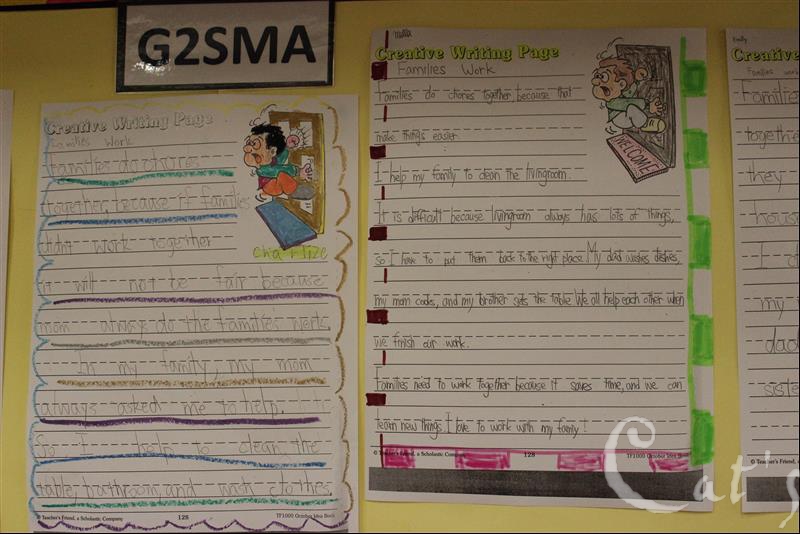 G2SMA
Creative Writing Page
Families Work
Families do chores
together, because if families
didnt work together
it will not be fair because
mom always do the families work.
In my family, my mom
always asked me to help.
So I help to clean the
table, bathroom, and wash clothes
Charlize
© Teacher's Friend, a Scholastic Company
128
TF1000 October Idea Book
Creative Writing Page
Families Work
Families do chores together because that
make things easier.
I help my family to clean the livingroom.
It is difficult because livingroom always has lots of things,
so I have to put them back to the right place. My dad washes dishes,
my mom cooks, and my brother sets the table. We all help each other when
we finish our work.
Families need to work together because it saves time, and we can
learn new things. I love to work with my family!
WELCOME
© Teacher's Friend, a Scholastic Company
128
TF1000 October Idea Book
Emily
Creative
Families work
Families
together
they
hous
I d
my
dad
sist
© Teacher's Friend, a S
Cat's